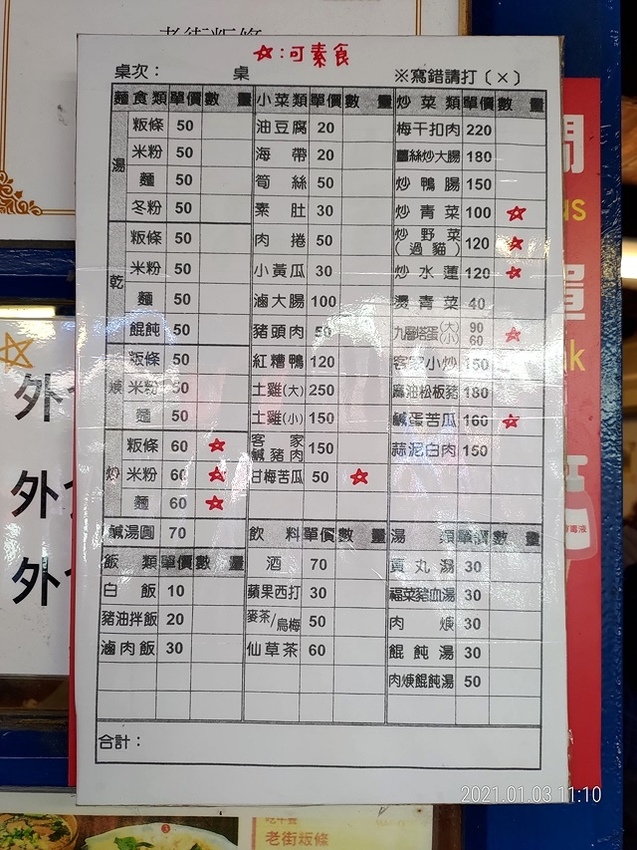 老街粄條
☆:可素食
桌次： 桌 ※寫錯請打(×)
麵食類 單價 數量 小菜類 單價 數量 炒菜類 單價 數量
湯 粄條 50 油豆腐 20 梅干扣肉 220
米粉 50 海帶 20 薑絲炒大腸 180
麵 50 筍絲 50 炒鴨腸 150
冬粉 50 素肚 30 炒青菜 100 ☆
乾 粄條 50 肉捲 50 炒野菜(過貓) 120 ☆
米粉 50 小黃瓜 30 炒水蓮 120 ☆
麵 50 滷大腸 100 燙青菜 40
餛飩 50 豬頭肉 50 九層塔蛋(大)(小) 90 60 ☆
焿 粄條 50 紅糟鴨 120 客家小炒 150
米粉 50 土雞(大) 250 麻油松板豬 180
麵 50 土雞(小) 150 鹹蛋苦瓜 160 ☆
炒 粄條 60 ☆ 客家鹹豬肉 150 蒜泥白肉 150
米粉 60 ☆ 甘梅苦瓜 50 ☆
麵 60 ☆
鹹湯圓 70 飲料 單價 數量 湯類 單價 數量
飯類 單價 數量 酒 70 貢丸湯 30
白飯 10 蘋果西打 30 福菜豬血湯 30
豬油拌飯 20 麥茶/烏梅 50 肉焿 30
滷肉飯 30 仙草茶 60 餛飩湯 30
肉焿餛飩湯 50
合計：
外
外
外
us
單
k
老街粄條
2021.01.03 11:10